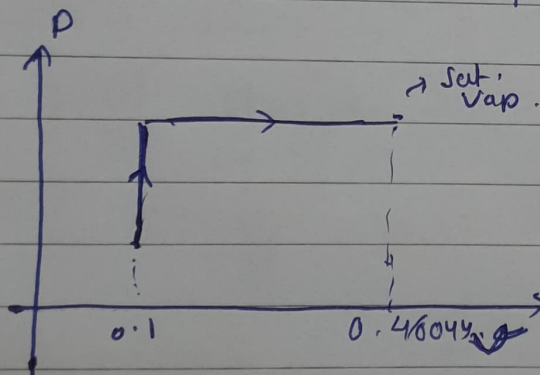 P
→ Sat.
Vap.
0.1
0.46044